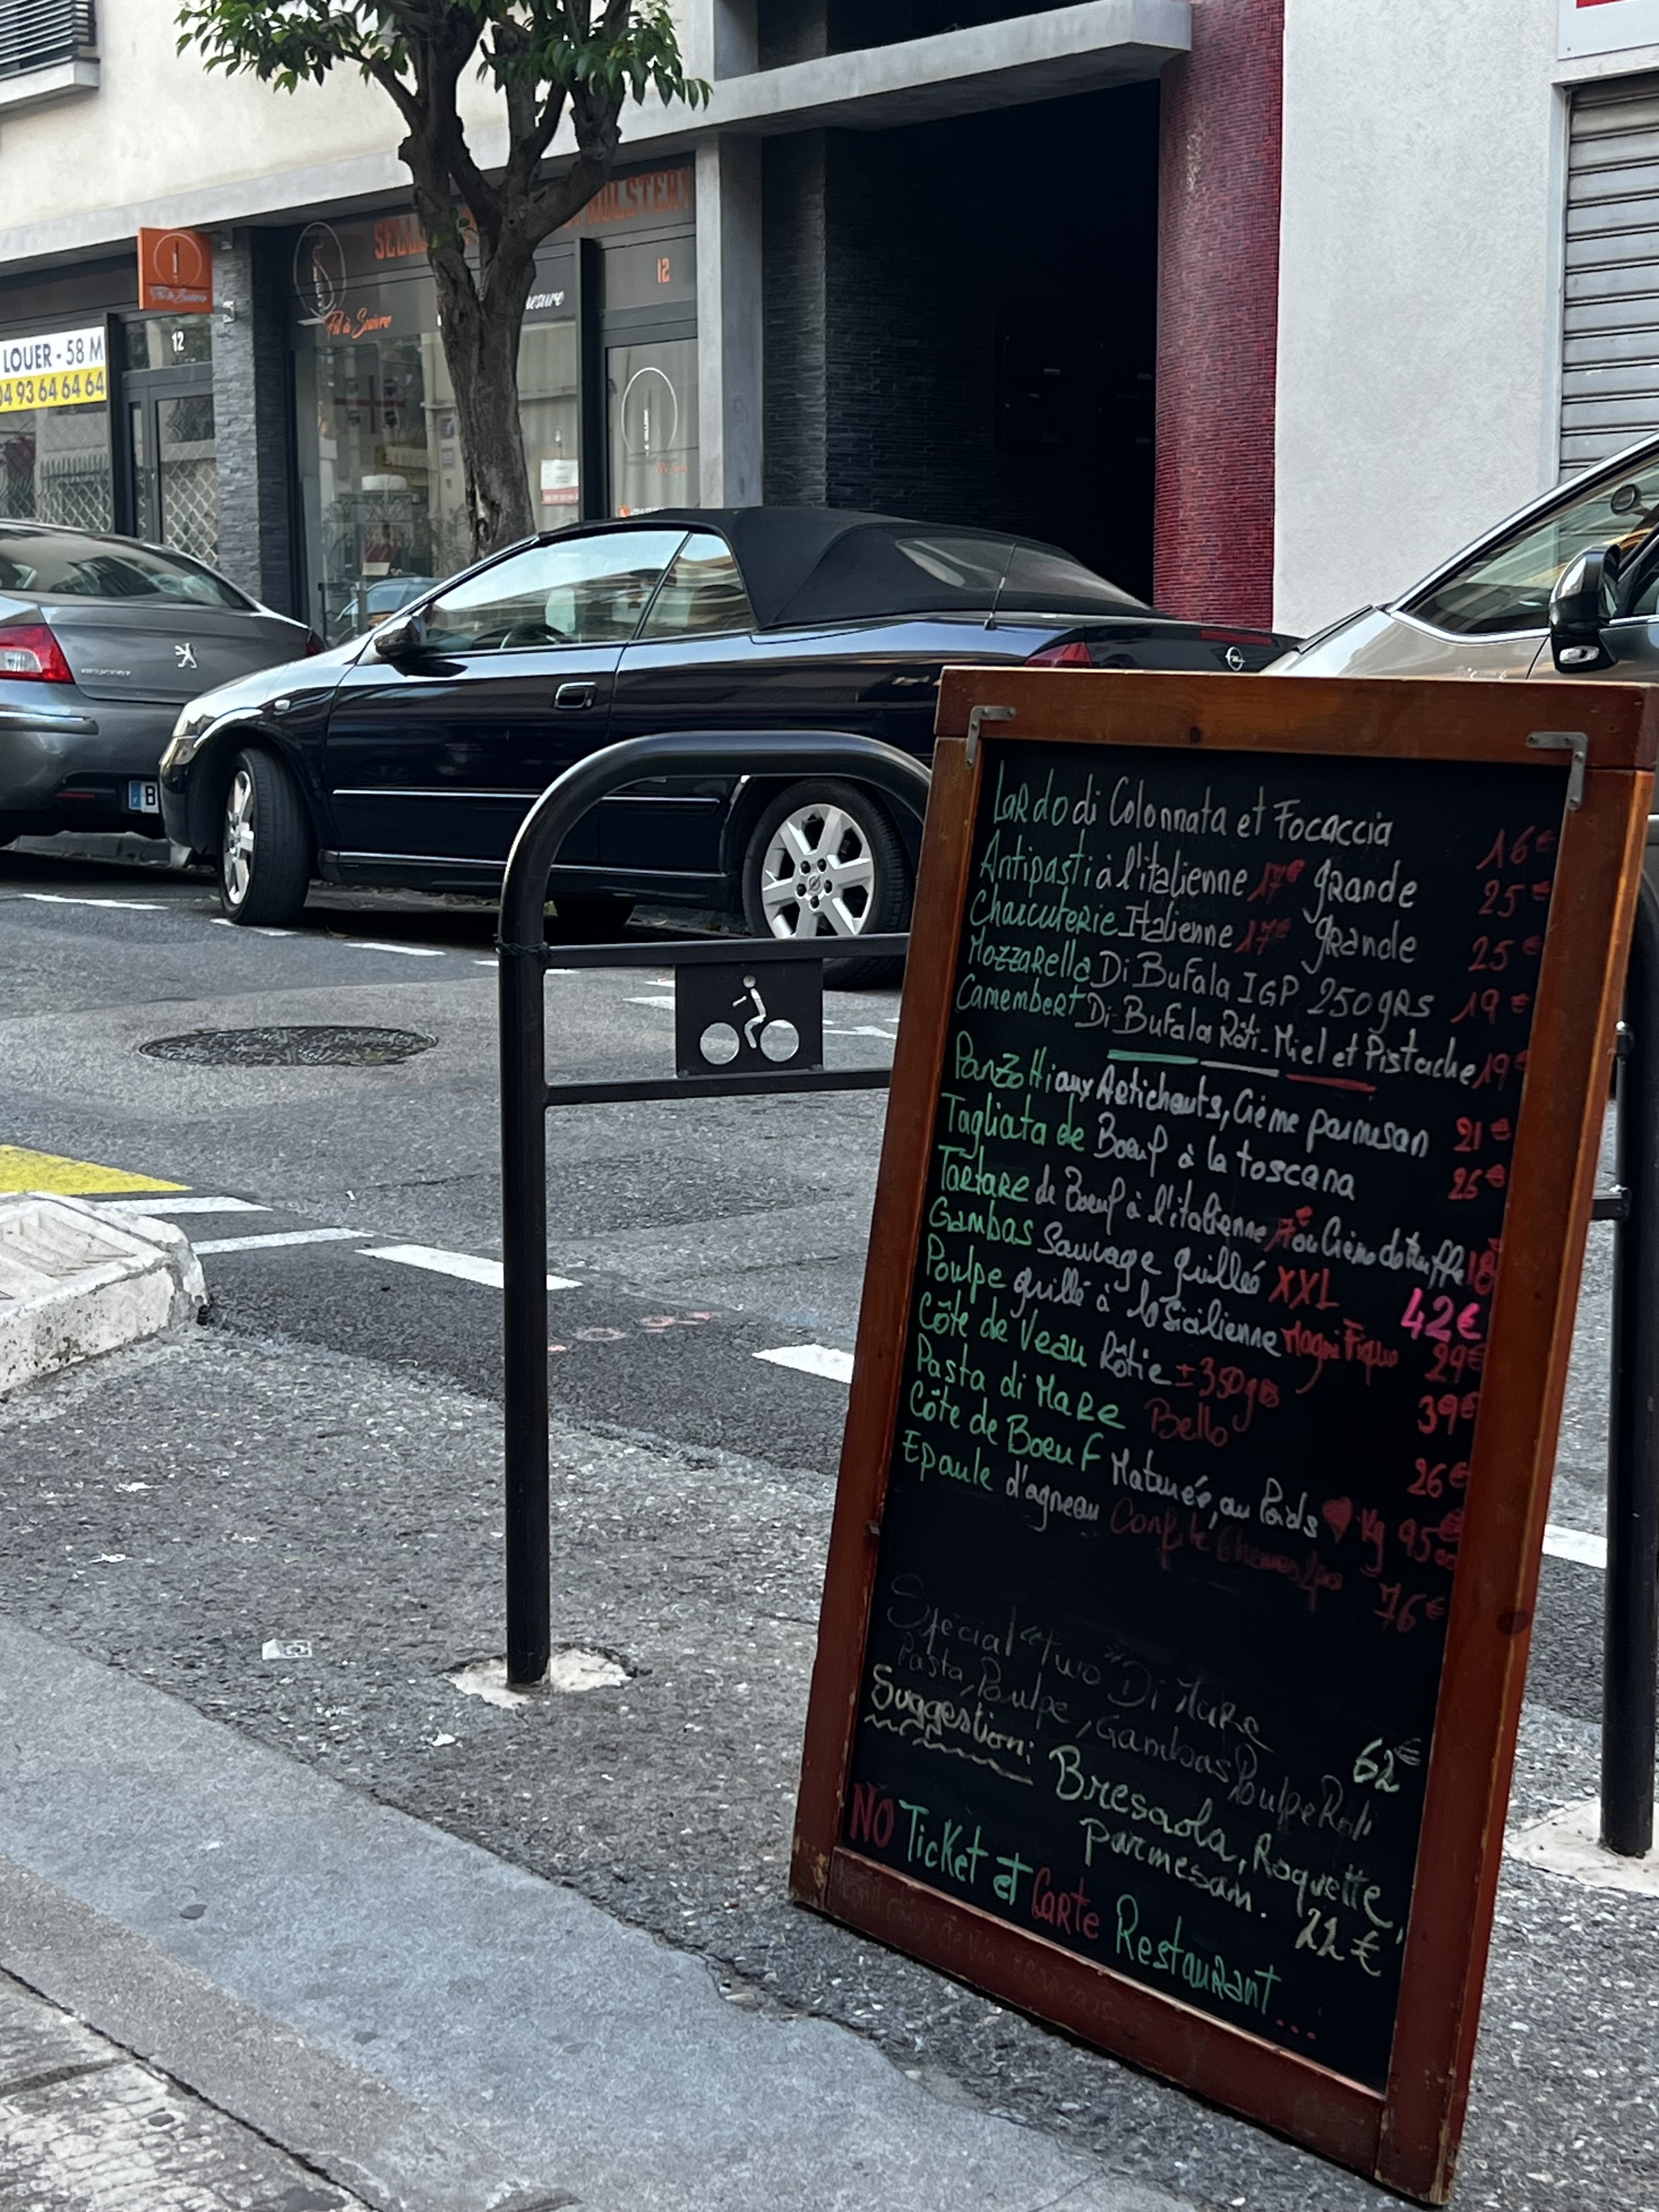 LOUER - 58 M
04 93 64 64 64
12
Fil à Suivre
12
PEUGEOT
B
Lardo di Colonnata et Focaccia 16€
Antipasti à l'italienne 17€ grande 25€
Charcuterie Italienne 17€ grande 25€
Mozzarella Di Bufala IGP 250grs 19€
Camembert Di Bufala Rôti-Miel et Pistache 19€
Panzotti aux Artichauts, Crème parmesan 21€
Tagliata de Boeuf à la toscana 26€
Tartare de Boeuf à l'italienne ou Crème de truffe 18€
Gambas Sauvage grillée XXL 42€
Poulpe grillé à la sicilienne Magnifique 29€
Côte de Veau Rôtie ±350grs 39€
Pasta di Mare Bello 26€
Côte de Boeuf Maturée, au Poids ♥ kg 95€
Epaule d'agneau Confite 76€
Spécial "Two" Di Mare 62€
Pasta, Poulpe, Gambas Poulpe Roti
Suggestion: Bresaola, Roquette,
parmesan. 22€
NO Ticket et Carte Restaurant ...